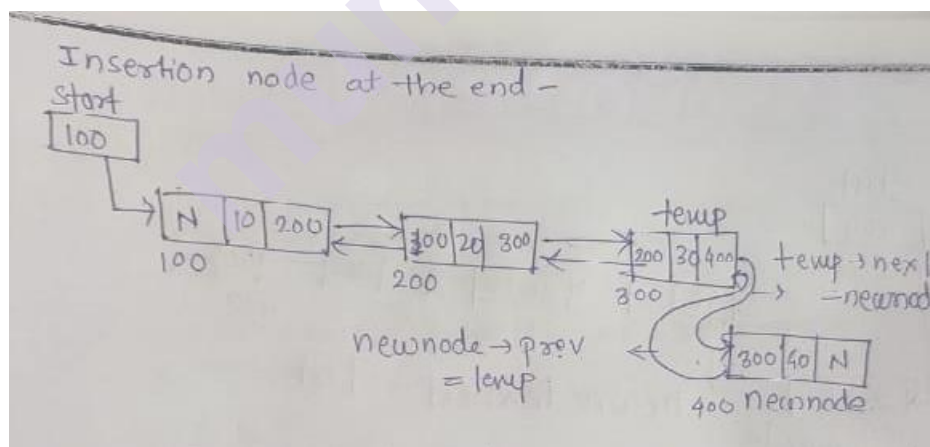 Insertion node at the end -
Start
100
N 10 200
100
100 20 300
200
temp
200 30 400
300
temp → next
= newnod
newnode → prev
= temp
300 40 N
400 newnode